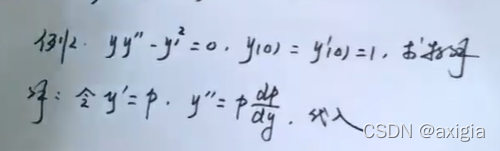 例12. yy″ - y′² = 0. y(0) = y′(0) = 1, 求特解
解: 令 y′ = p. y″ = p dp/dy. 代入
CSDN @axigia